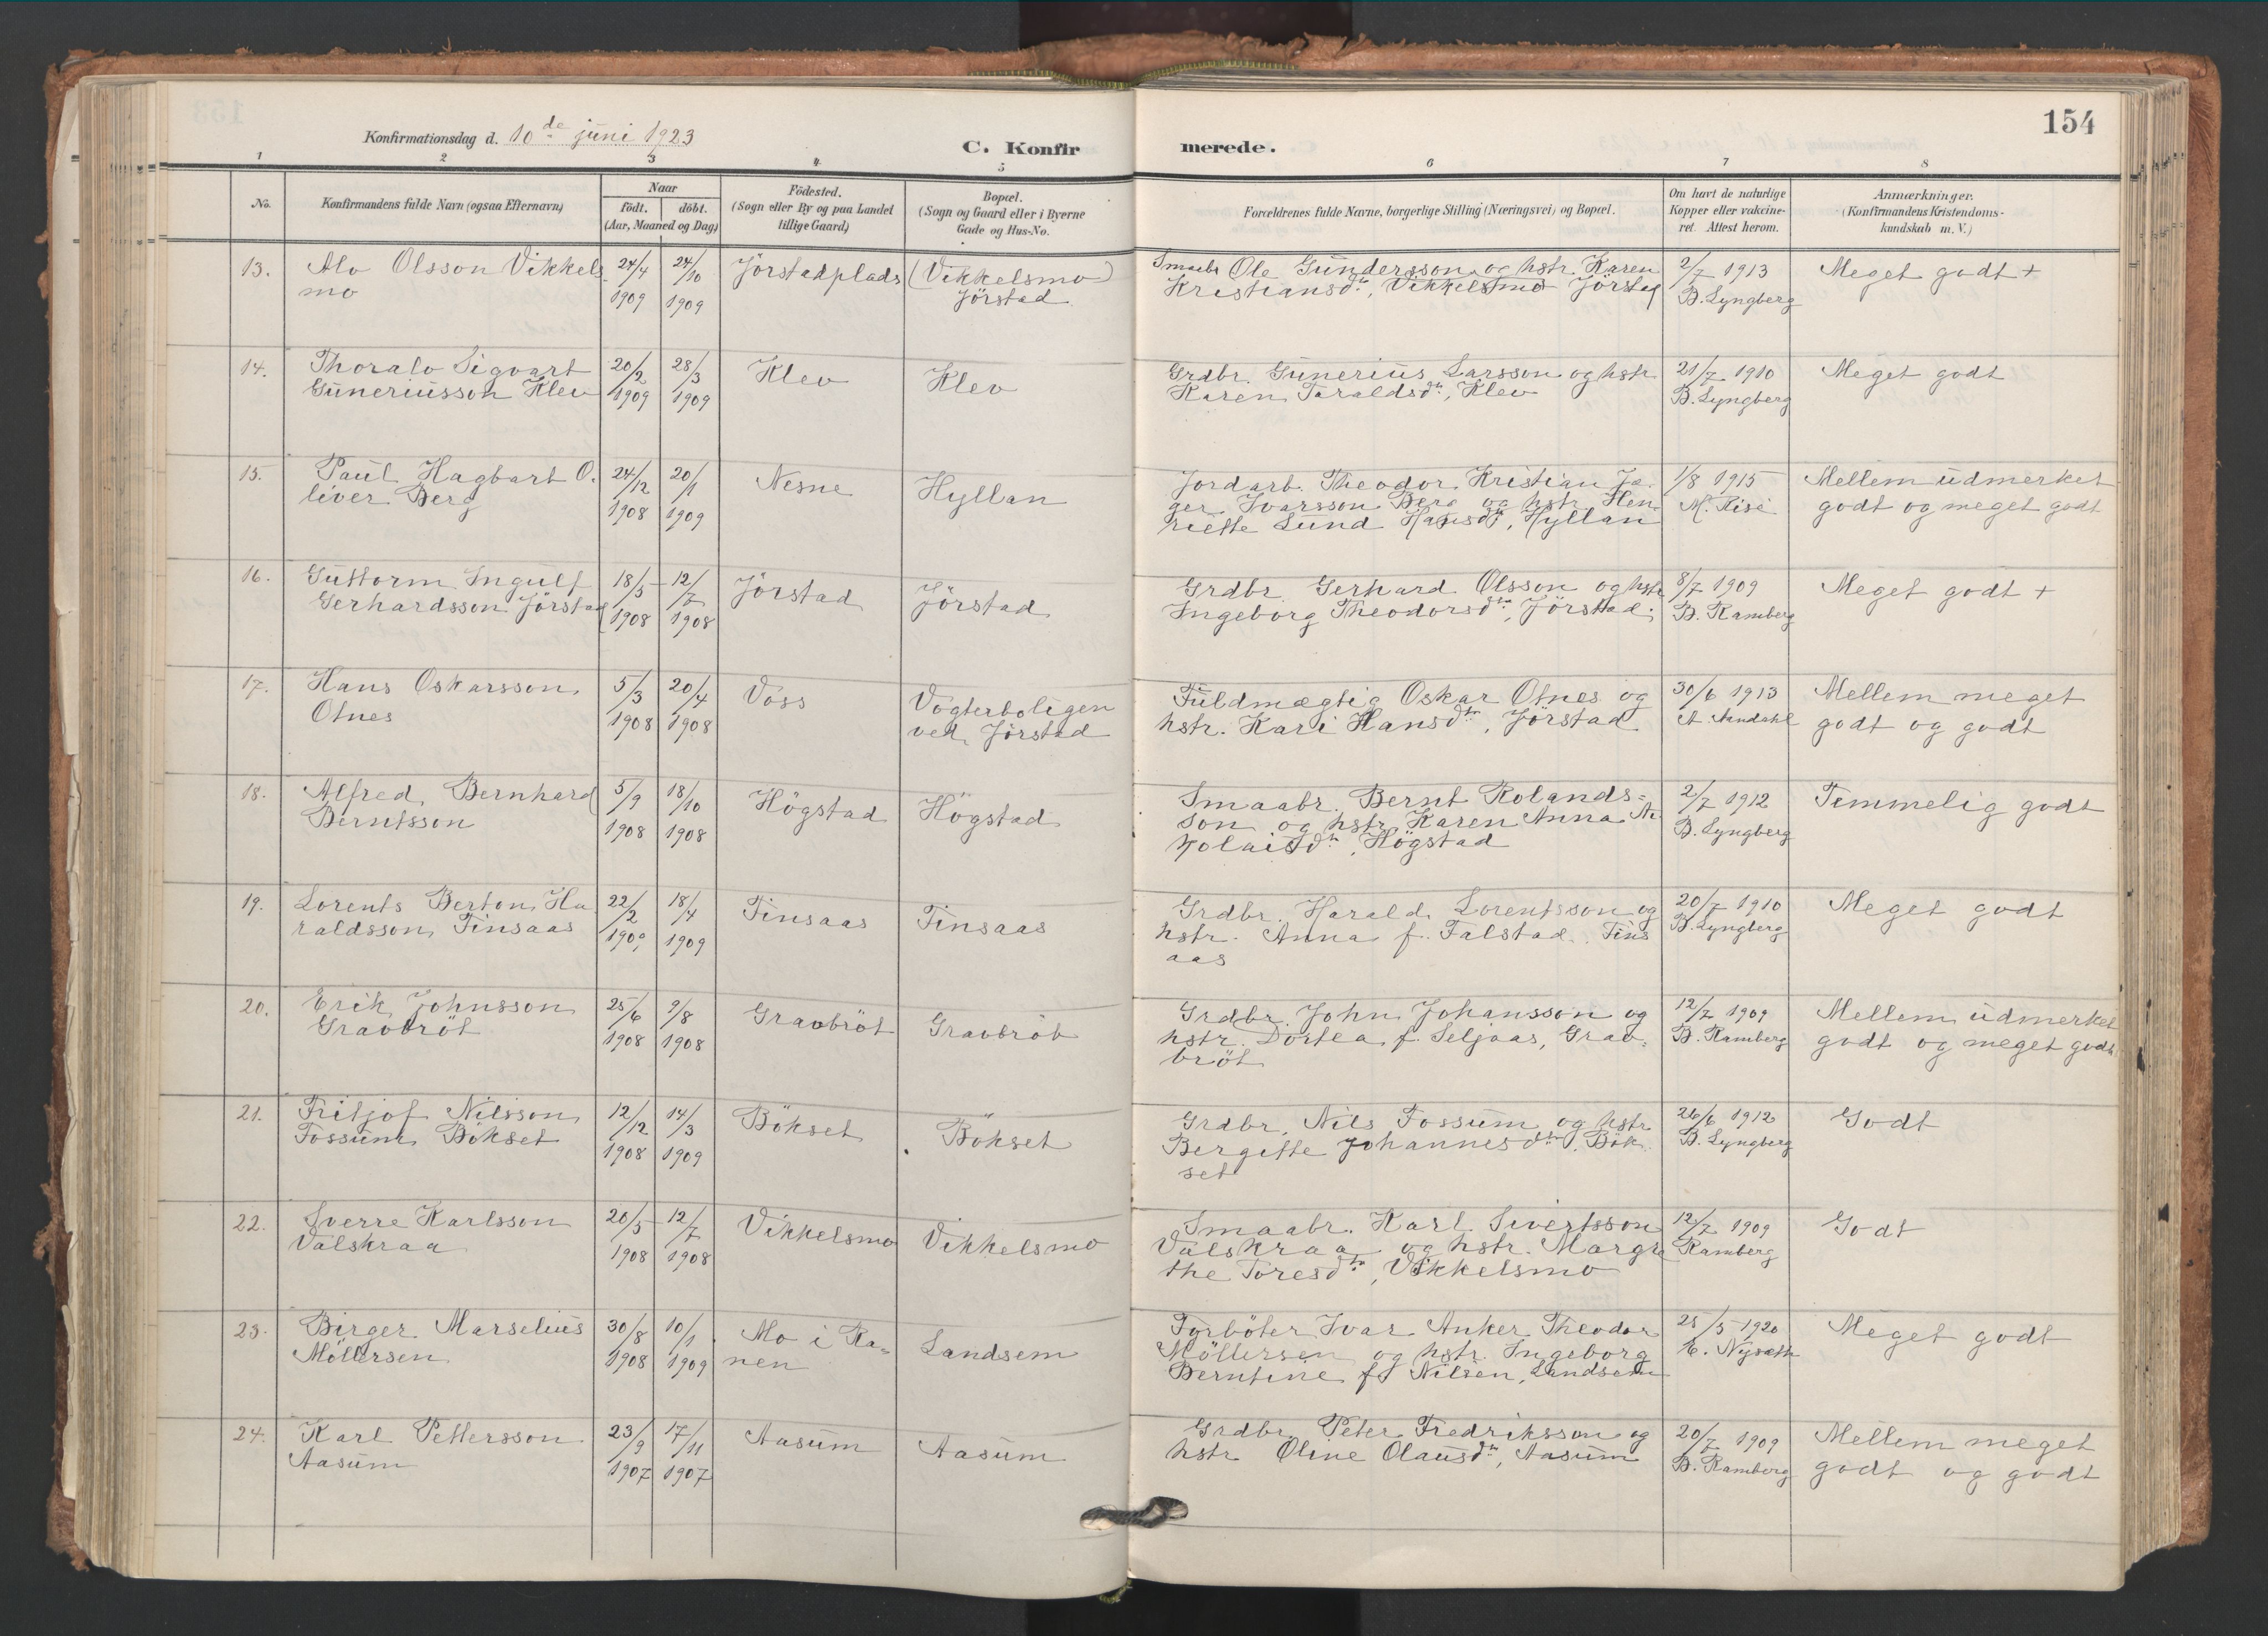 154
Konfirmationsdag d. 10de juni 1923
C. Konfir merede.
1 2 3 4 5 6 7 8
No.
Konfirmandens fulde Navn (ogsaa Efternavn)
Naar
födt. döbt.
(Aar, Maaned og Dag)
Födested.
(Sogn eller By og paa Landet
tillige Gaard)
Bopæl.
(Sogn og Gaard eller i Byerne
Gade og Hus-No.
Forældrenes fulde Navne, borgerlige Stilling (Næringsvei) og Bopæl.
Om havt de naturlige
Kopper eller vakcine-
ret. Attest herom.
Anmærkninger.
(Konfirmandens Kristendoms-
kundskab m. V.)
13. Alv Olsson Vikkels 24/4 24/10 Jörstadplads (Vikkelsmo) Smaabr Ole Gundersson og hstr. Karen 2/7 1913 Meget godt +
mo 1909 1909 Jörstad Kristiansdtr, Vikkelsmo Jörstad B. Lyngberg
14. Thoralv Sigvart 20/2 28/3 Klev Klev Grdbr. Gunerius Larsson og hstr. 21/7 1910 Meget godt
Guneriusson Klev 1909 1909 Karen Taraldsdtr, Klev B. Lyngberg
15. Paul Hagbart O. 24/12 20/1 Nesne Hyllan Jordarb. Theodor Kristian Ja- 1/8 1915 Mellem udmerket
liver Berg 1908 1909 ger Ivarsson Berg og hstr. Hen- M. Risè godt og meget godt
riette Lund Hansdtr, Hyllan
16. Guttorm Ingulf 18/5 12/7 Jörstad Jörstad Grdbr. Gerhard Olsson og hstr 8/7 1909 Meget godt +
Gerhardsson Jörstad 1908 1908 Ingeborg Theodorsdtr, Jörstad. B. Ramberg
17. Hans Oskarsson 5/3 20/4 Voss Vogterboligen Fuldmægtig Oskar Otnes og 30/6 1913 Mellem meget
Otnes 1908 1908 ved Jörstad hstr. Kari Hansdtr, Jörstad godt og godt
18. Alfred Bernhard 5/9 18/10 Högstad Högstad Smaabr. Bernt Rolands= 2/7 1912 Temmelig godt
Berntsson 1908 1908 son og hstr. Karen Anna Ni B. Lyngberg
kolaisdtr, Högstad
19. Lorents Berton Ha 22/2 18/4 Finsaas Finsaas Grdbr. Harald Lorentsson og 20/7 1910 Meget godt
raldsson Finsaas 1909 1909 hstr. Anna f. Falstad, Fins B. Lyngberg
aas
20. Erik Johnsson 25/6 9/8 Gravbröt Gravbröt Grdbr. John Johansson og 12/7 1909 Mellem udmerket
Gravbröt 1908 1908 hstr. Dortea f. Seljaas, Grav- B. Ramberg godt og meget godt
bröt
21. Fritjof Nilsson 12/12 14/3 Bökset Bökset Grdbr. Nils Fossum og hstr. 26/6 1912 Godt
Fossum Bökset 1908 1909 Bergitte Johannesdtr, Bök B. Lyngberg
set
22. Sverre Karlsson 20/5 12/7 Vikkelsmo Vikkelsmo Smaabr. Karl Sivertsson 12/7 1909 Godt
Valskraa 1908 1908 Valskraa og hstr. Margre Ramberg
the Toresdtr, Vikkelsmo
23. Birger Marselius 30/8 10/1 Mo i Ra= Landsem Forböter Ivar Anker Theodor 25/5 1920 Meget godt
Möllersen 1908 1909 nen Möllersen og hstr. Ingeborg Nysæth
Berntine f. Nilsen, Landsem
24. Karl Pettersson 23/9 17/11 Aasum Aasum Grdbr. Peter Fredriksson og 20/7 1909 Mellem meget
Aasum 1907 1907 hstr Oline Olausdtr, Aasum B. Ramberg godt og godt